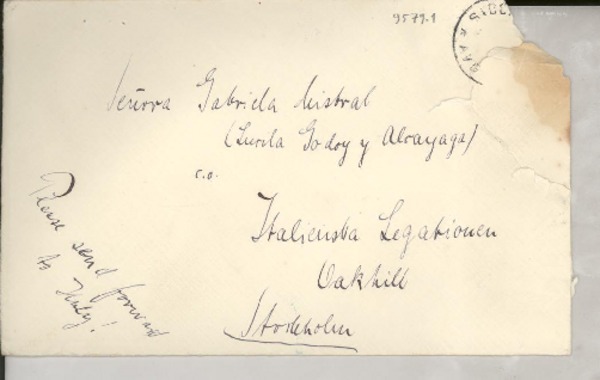 9579.1
Señora Gabriela Mistral
(Lucila Godoy y Alcayaga)
c.o.
Italienska Legationen
Oakhill
Stockholm
Please send forward
to Italy!